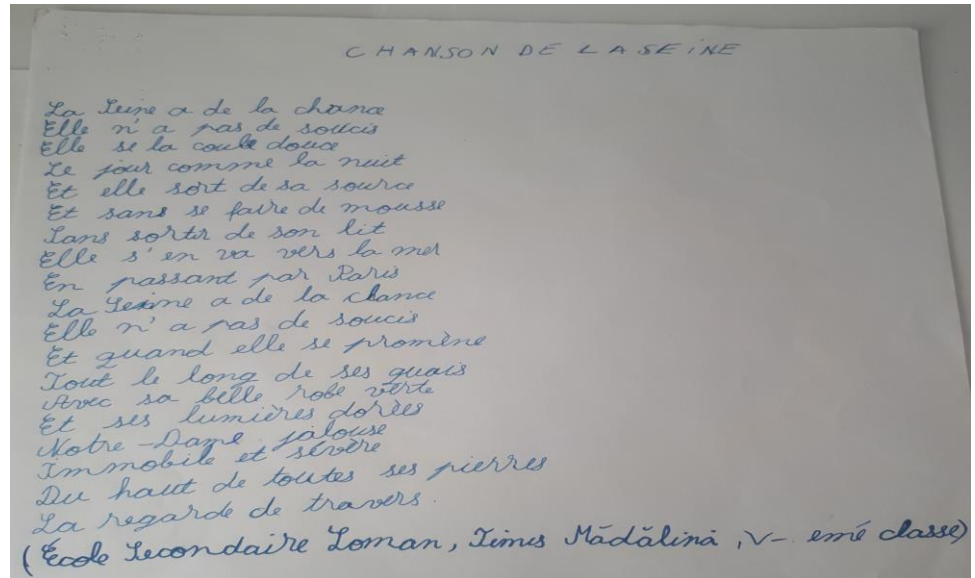 CHANSON DE LA SEINE
La Seine a de la chance
Elle n'a pas de soucis
Elle se la coule douce
Le jour comme la nuit
Et elle sort de sa source
Et sans se faire de mousse
Sans sortir de son lit
Elle s'en va vers la mer
En passant par Paris
La Seine a de la chance
Elle n'a pas de soucis
Et quand elle se promène
Tout le long de ses quais
Avec sa belle robe verte
Et ses lumières dorées
Notre-Dame jalouse
Immobile et sévère
Du haut de toutes ses pierres
La regarde de travers.
(École Secondaire Loman, Timis Mădălina, V-emé classe)